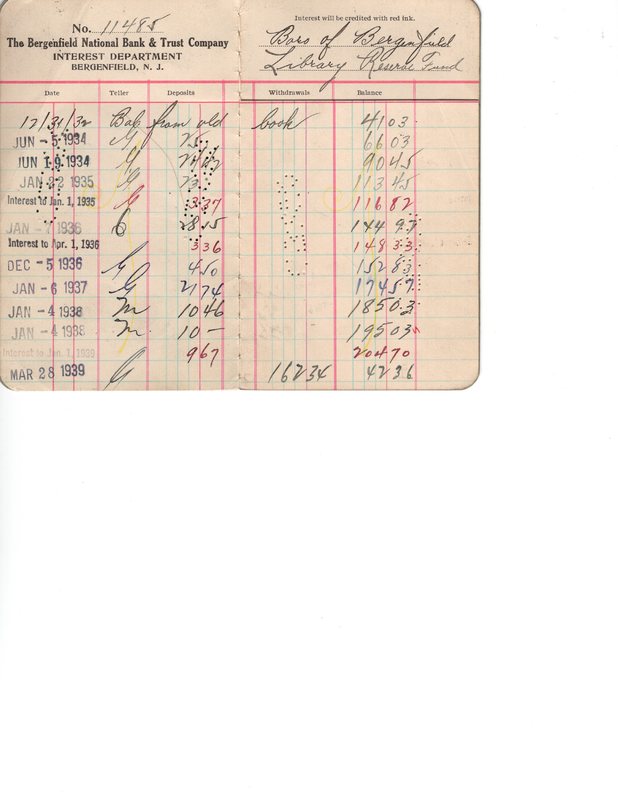 Interest will be credited with red ink.
No. 11485
The Bergenfield National Bank & Trust Company
INTEREST DEPARTMENT
BERGENFIELD, N. J.
Boro of Bergenfield
Library Reserve Fund
Date Teller Deposits Withdrawals Balance
12/31/32 Bal from old book 41 03
JUN - 5 1934 G 25 66 03
JUN 19 1934 G 90 45
JAN 22 1935 G 23 113 45
Interest to Jan. 1, 1935 G 3 37 116 82
JAN - 7 1936 28 15 144 97
Interest to Apr. 1, 1936 3 36 148 33
DEC - 5 1936 G 4 50 152 83
JAN - 6 1937 G 21 74 174 57
JAN - 4 1938 M 10 46 185 03
JAN - 4 1938 M 10 - 195 03
Interest to Jan. 1, 1939 9 67 204 70
MAR 28 1939 G 162 34 42 36